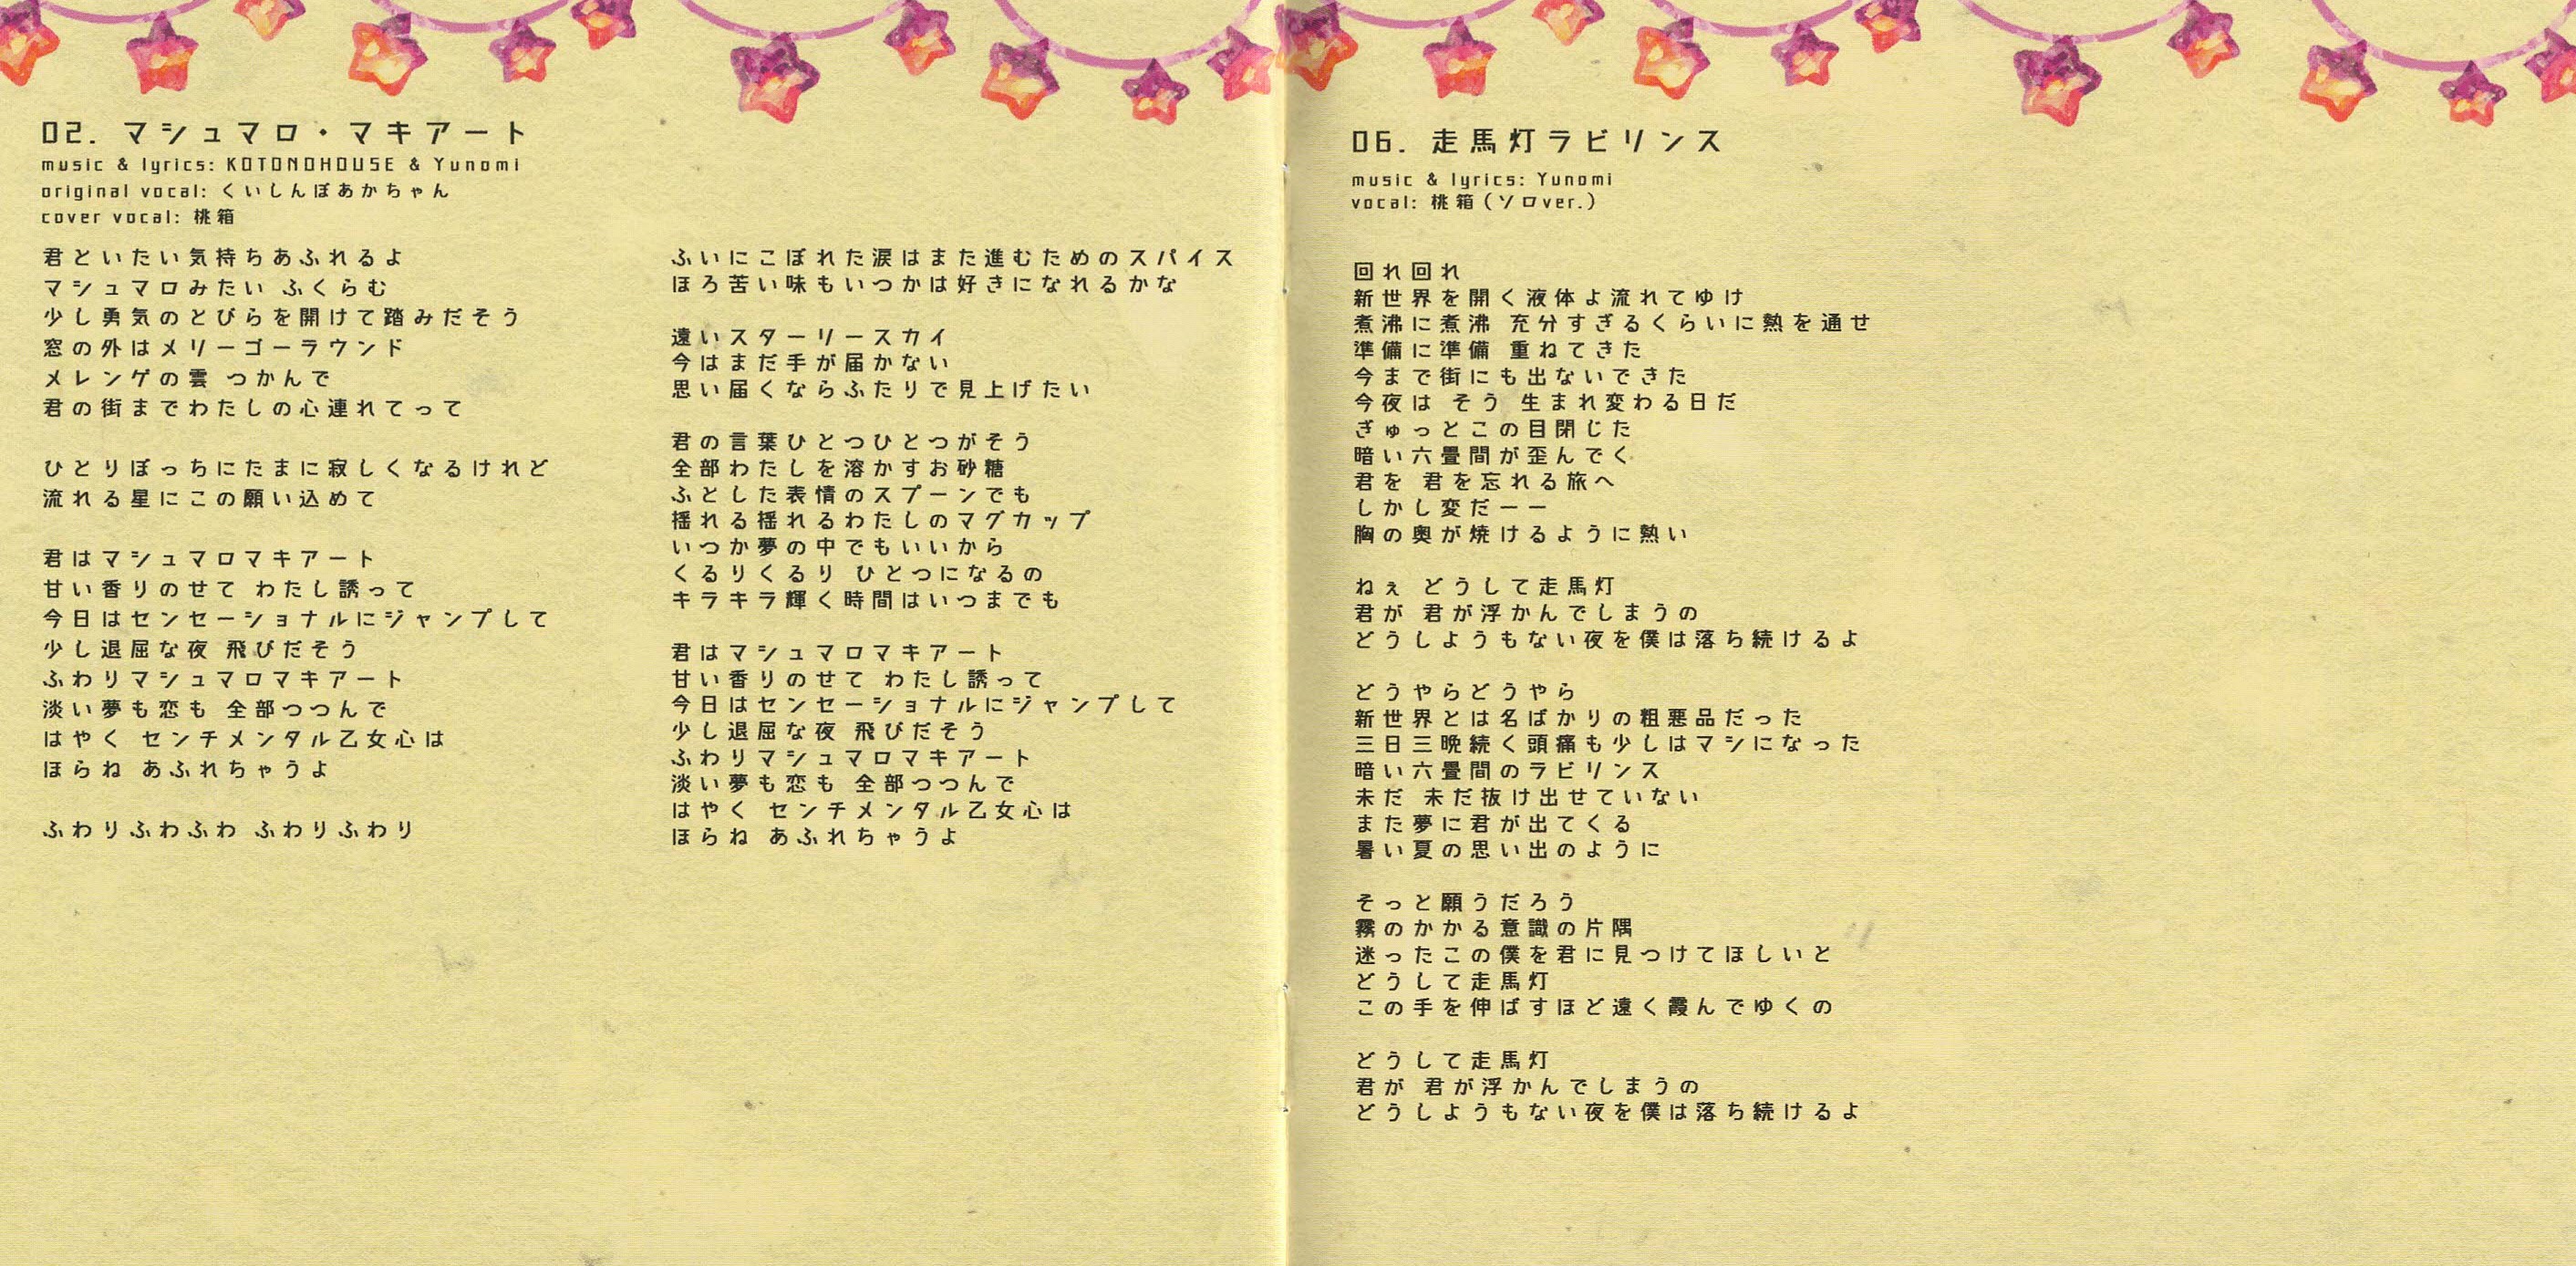 02. マシュマロ・マキアート
music & lyrics: KOTONOHOUSE & Yunomi
original vocal: くいしんぼあかちゃん
cover vocal: 桃箱
君といたい気持ちあふれるよ
マシュマロみたい ふくらむ
少し勇気のとびらを開けて踏みだそう
窓の外はメリーゴーラウンド
メレンゲの雲 つかんで
君の街までわたしの心連れてって
ひとりぼっちにたまに寂しくなるけれど
流れる星にこの願い込めて
君はマシュマロマキアート
甘い香りのせて わたし誘って
今日はセンセーショナルにジャンプして
少し退屈な夜 飛びだそう
ふわりマシュマロマキアート
淡い夢も恋も 全部つつんで
はやく センチメンタル乙女心は
ほらね あふれちゃうよ
ふわりふわふわ ふわりふわり
ふいにこぼれた涙はまた進むためのスパイス
ほろ苦い味もいつかは好きになれるかな
遠いスターリースカイ
今はまだ手が届かない
思い届くならふたりで見上げたい
君の言葉ひとつひとつがそう
全部わたしを溶かすお砂糖
ふとした表情のスプーンでも
揺れる揺れるわたしのマグカップ
いつか夢の中でもいいから
くるりくるり ひとつになるの
キラキラ輝く時間はいつまでも
君はマシュマロマキアート
甘い香りのせて わたし誘って
今日はセンセーショナルにジャンプして
少し退屈な夜 飛びだそう
ふわりマシュマロマキアート
淡い夢も恋も 全部つつんで
はやく センチメンタル乙女心は
ほらね あふれちゃうよ
06. 走馬灯ラビリンス
music & lyrics: Yunomi
vocal: 桃箱(ソロver.)
回れ回れ
新世界を開く液体よ流れてゆけ
煮沸に煮沸 充分すぎるくらいに熱を通せ
準備に準備 重ねてきた
今まで街にも出ないできた
今夜は そう 生まれ変わる日だ
ぎゅっとこの目閉じた
暗い六畳間が歪んでく
君を 君を忘れる旅へ
しかし変だーー
胸の奥が焼けるように熱い
ねぇ どうして走馬灯
君が 君が浮かんでしまうの
どうしようもない夜を僕は落ち続けるよ
どうやらどうやら
新世界とは名ばかりの粗悪品だった
三日三晩続く頭痛も少しはマシになった
暗い六畳間のラビリンス
未だ 未だ抜け出せていない
また夢に君が出てくる
暑い夏の思い出のように
そっと願うだろう
霧のかかる意識の片隅
迷ったこの僕を君に見つけてほしいと
どうして走馬灯
この手を伸ばすほど遠く霞んでゆくの
どうして走馬灯
君が 君が浮かんでしまうの
どうしようもない夜を僕は落ち続けるよ